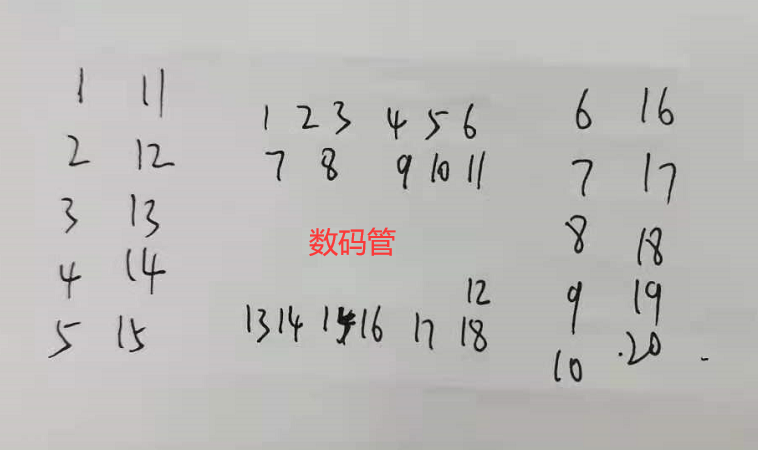 1 11
2 12
3 13
4 14
5 15
1 2 3 4 5 6
7 8 9 10 11
数码管
12
13 14 15 16 17 18
6 16
7 17
8 18
9 19
10 .20